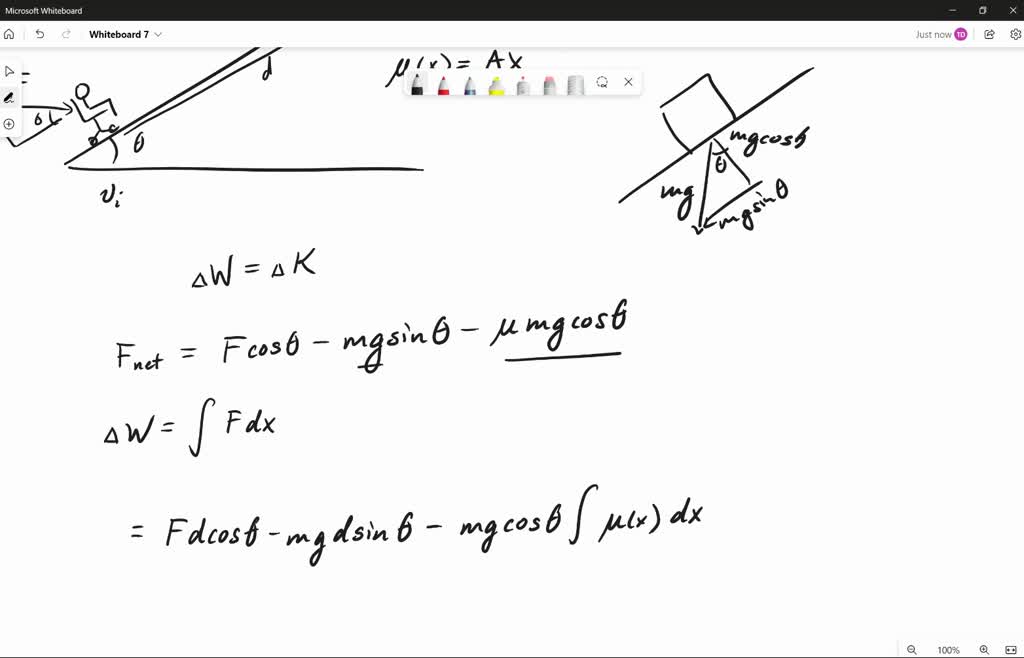 Microsoft Whiteboard
Whiteboard 7
Just now TD
μ(x) = Ax
d
θ
v_i
mgcosθ
θ
mg
mgsinθ
ΔW = ΔK
F_net = Fcosθ - mgsinθ - μmgcosθ
ΔW = ∫ F dx
= Fdcosθ - mgdsinθ - mgcosθ ∫ μ(x) dx
100%